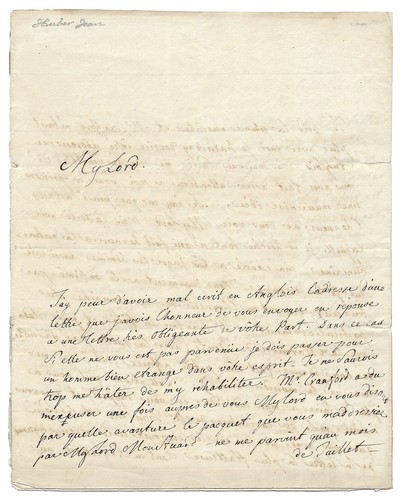 Huber Jean
My Lord.
J'ay peur d'avoir mal ecrit en Anglois L'adresse d'une
lettre que j'avois L'honneur de vous envoyer en reponse
a une Lettre très obligeante de votre Part. Dans ce cas
si elle ne vous est pas parvenüe je dois passer pour
un homme bien etrange dans votre esprit. Je ne saurois
trop me hâter de my rehabiliter. Mr. Cranford a du
m'excuser une fois auprès de vous MyLord en vous disant
par quelle avanture le pacquet que vous m'adressiez
par MyLord Monstuard ne me parvint qu'au mois
de Juillet